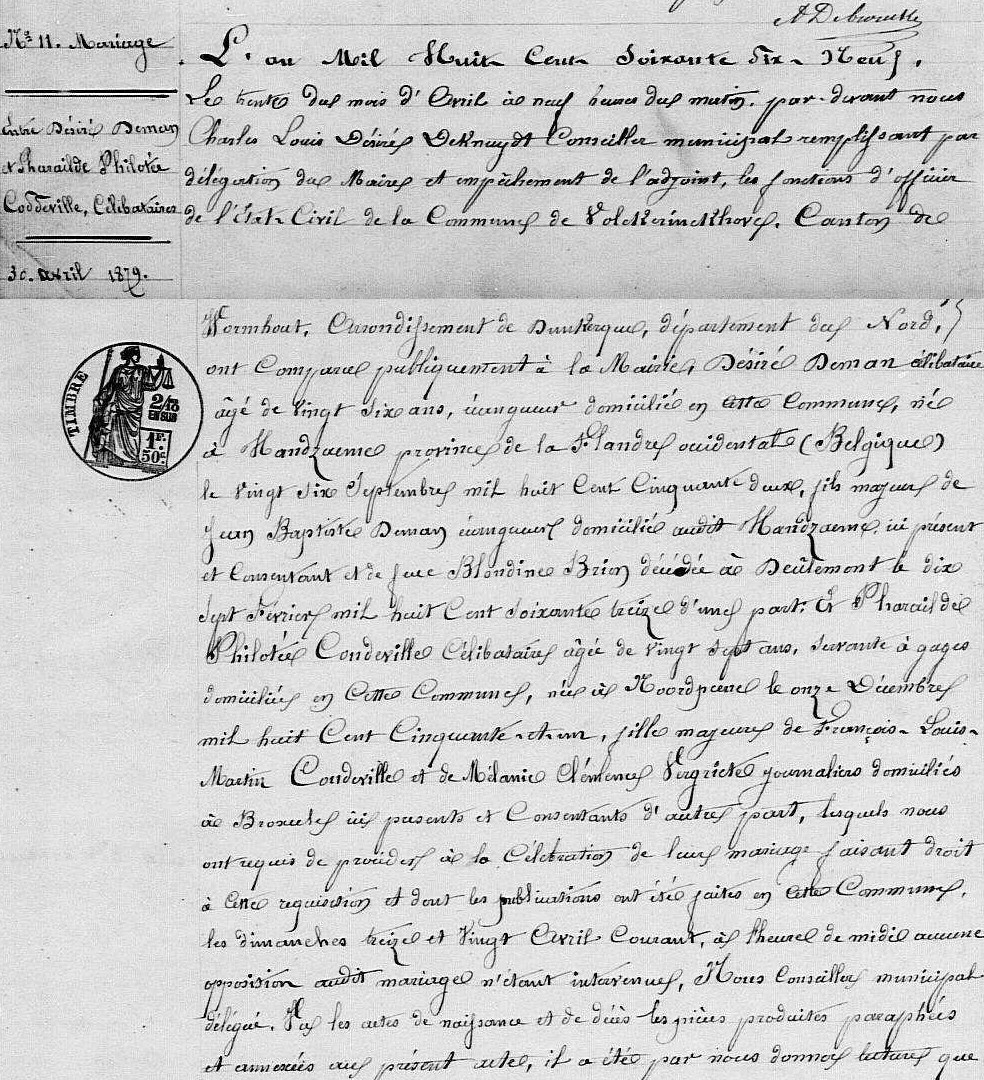 A Debruille
Nº 11. Mariage
Entre Désiré Deman
et Pharailde Philotée
Coudeville, Célibataires
30. avril 1879.
L'an Mil Huit Cent Soixante Dix-Neuf,
Le trente du mois d'Avril à neuf heures du matin, par-devant nous
Charles Louis Désiré DeKnuydt Conseiller municipal remplissant par
délégation du Maire et empêchement de l'adjoint, les fonctions d'officier
de l'Etat-Civil de la Commune de Volckerinckhove, Canton de
Wormhout, Arrondissement de Dunkerque, département du Nord,
ont Comparu publiquement à la Mairie, Désiré Deman célibataire
âgé de vingt six ans, domicilié en cette Commune, né
à Handzaeme province de la Flandre occidentale (Belgique)
le vingt six Septembre mil huit Cent Cinquante deux, fils majeur de
Jean Baptiste Deman domicilié audit Handzaeme, ici présent
et Consentant et de feue Blondine Brion décédée à Deûlemont le dix
sept Février mil huit Cent soixante treize d'une part. Et Pharailde
Philotée Coudeville Célibataire âgée de vingt sept ans, servante à gages
domiciliée en Cette Commune, née à Noordpeene le onze Décembre
mil huit Cent Cinquante-et-un, fille majeure de François-Louis-
Martin Coudeville et de Mélanie Clémence Vergriete journaliers domiciliés
à Broxeele ici présents et Consentants d'autre part, lesquels nous
ont requis de procéder à la Célébration de leur mariage faisant droit
à Cette requisition et dont les publications ont été faites en cette Commune,
les dimanches treize et Vingt Avril Courant, à l'heure de midi aucune
opposition audit mariage n'étant intervenue, Nous Conseiller municipal
délégué. Vu les actes de naissance et de décès les pièces produites paraphées
et annexées au présent acte, il a été par nous donné lecture que
TIMBRE
2/10
EN SUS
1F.
50c.